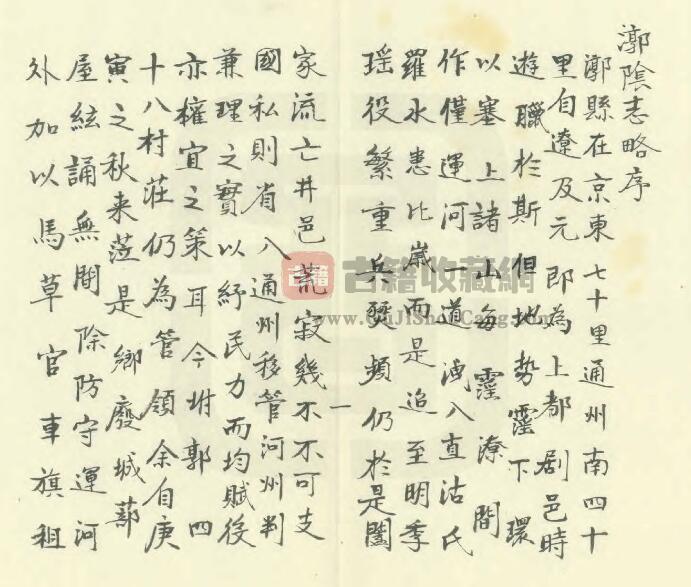 漷陰志略序
漷縣在京東七十里通州南四十
里自遼及元即為上都劇邑時
遊臘於斯但地勢窪下環
以塞上諸山每霪潦間
作僅運河一道洩入直沽氏
罹水患比歲而是迨至明季
瑶役繁重兵燹頻仍於是闔
一
家流亡井邑荒寂幾不不可支
國私則省入通州移管河州判
兼理之實以紓民力而均賦役
亦權宜之策耳今坿郭四
十八村莊仍為管領余自庚
寅之秋来蒞是鄉廢城蔀
屋絃誦無聞除防守運河
外加以馬草官車旗租
古籍
古籍收藏網
www.GuJiShouCang.com